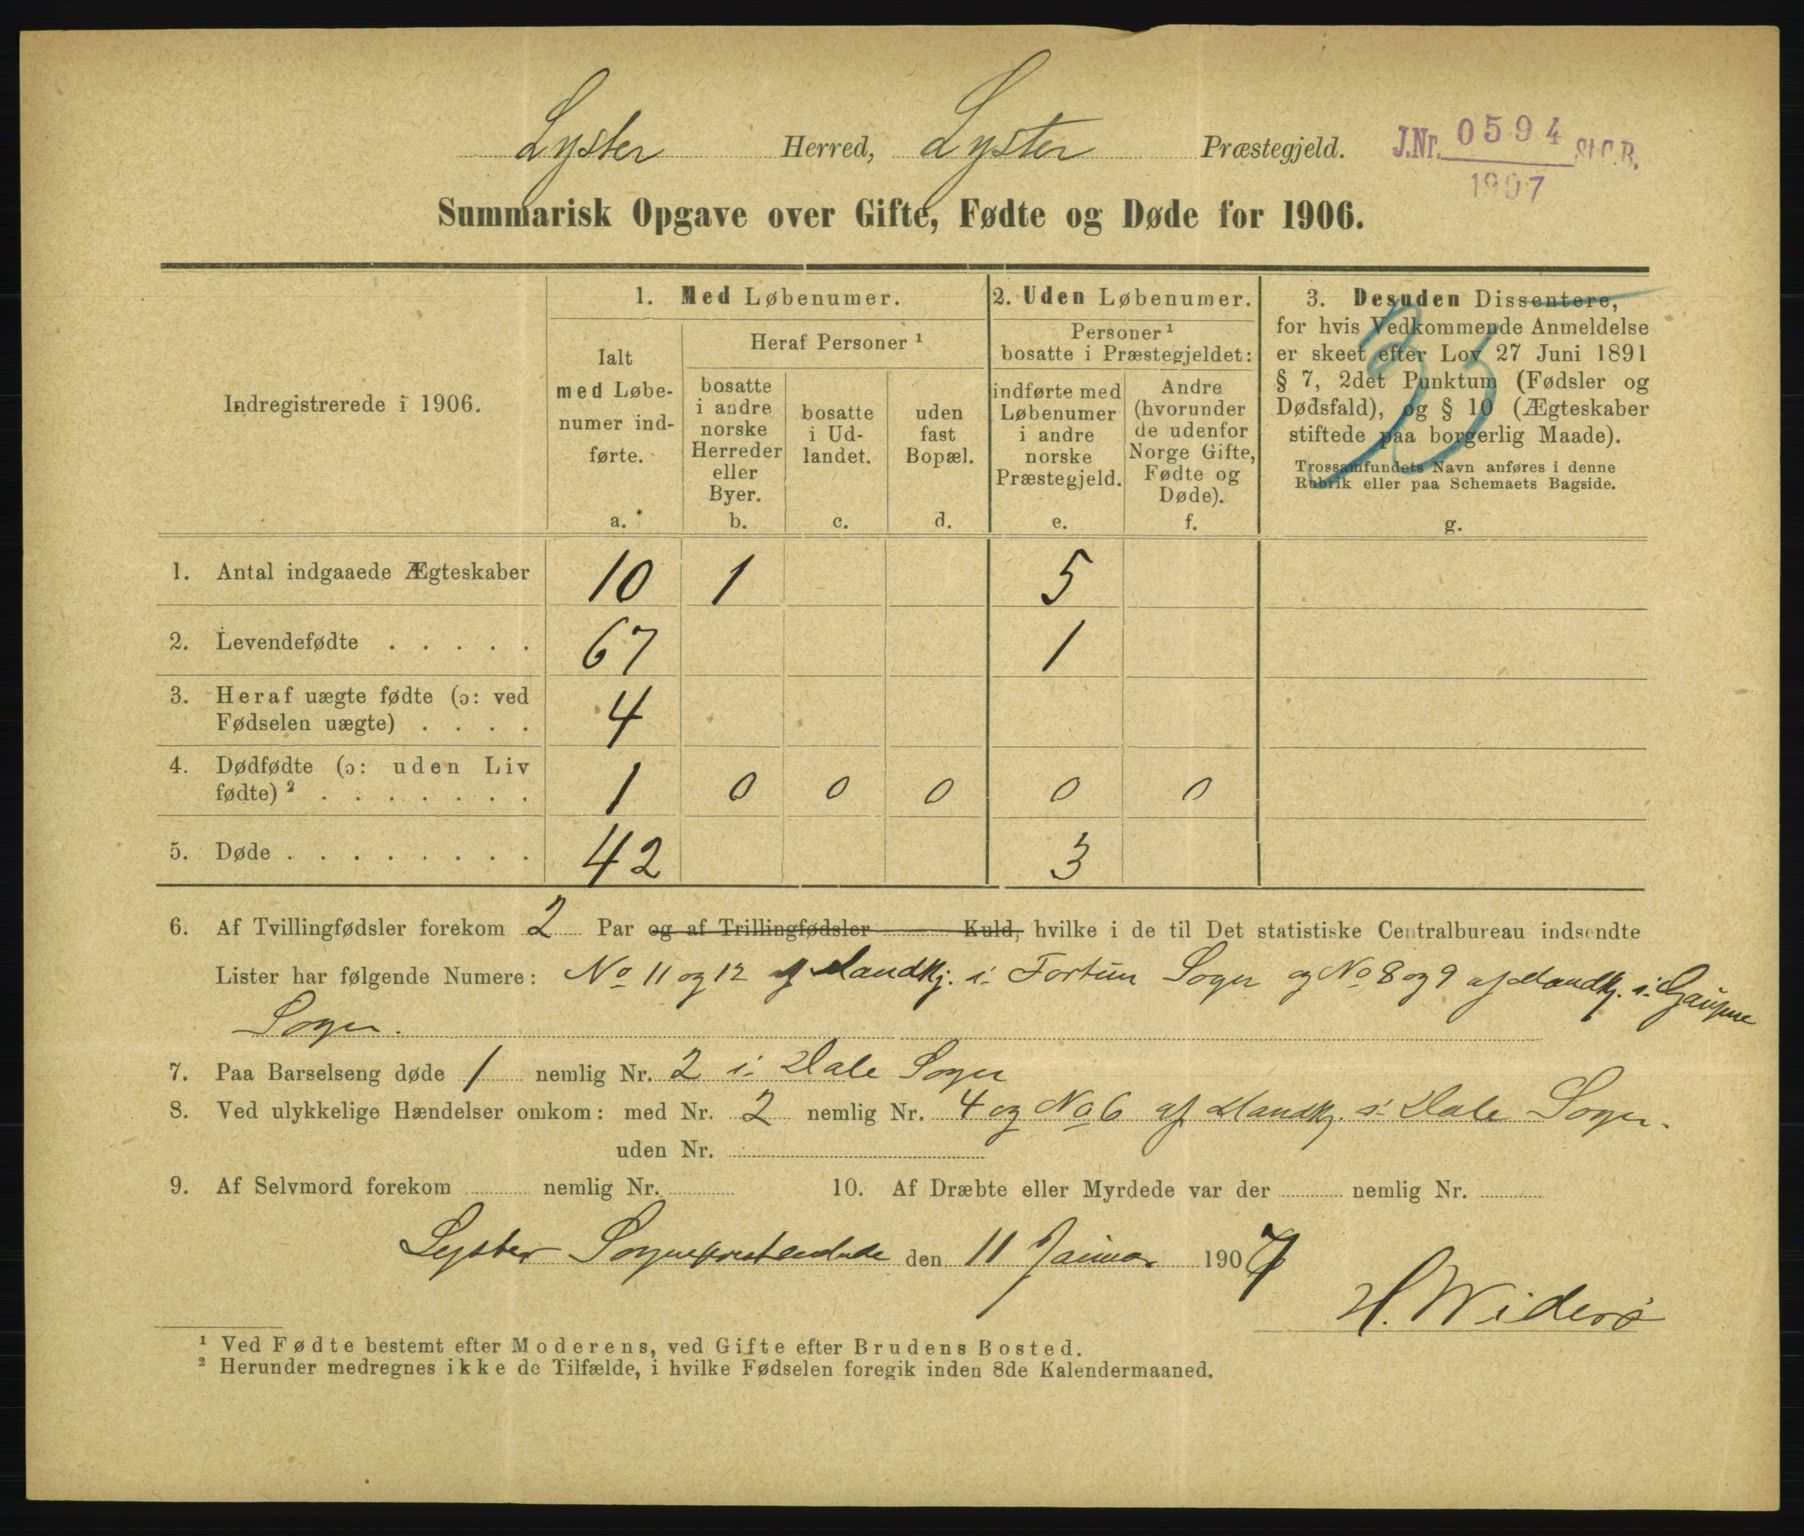 Lyster Herred, Lyster Præstegjeld. J.Nr. 0594 St.C.B.
1907
Summarisk Opgave over Gifte, Fødte og Døde for 1906.
Indregistrerede i 1906.
1. Med Løbenumer.
Ialt
med Løbe-
numer ind-
førte.
a.
Heraf Personer ¹
bosatte
i andre
norske
Herreder
eller
Byer.
b.
bosatte
i Ud-
landet.
c.
uden
fast
Bopæl.
d.
2. Uden Løbenumer.
Personer ¹
bosatte i Præstegjeldet:
indførte med
Løbenumer
i andre
norske
Præstegjeld.
e.
Andre
(hvorunder
de udenfor
Norge Gifte,
Fødte og
Døde).
f.
3. Desuden Dissentere,
for hvis Vedkommende Anmeldelse
er skeet efter Lov 27 Juni 1891
§ 7, 2det Punktum (Fødsler og
Dødsfald), og § 10 (Ægteskaber
stiftede paa borgerlig Maade).
Trossamfundets Navn anføres i denne
Rubrik eller paa Schemaets Bagside.
g.
33
1. Antal indgaaede Ægteskaber 10 1 5
2. Levendefødte . . . . . 67 1
3. Heraf uægte fødte (ɔ: ved
Fødselen uægte) . . . . 4
4. Dødfødte (ɔ: uden Liv
fødte) ² . . . . . . . 1 0 0 0 0 0
5. Døde . . . . . . . . 42 3
6. Af Tvillingfødsler forekom 2 Par og af Trillingfødsler Kuld, hvilke i de til Det statistiske Centralbureau indsendte
Lister har følgende Numere: No 11 og 12 af Mandkj. i Fortun Sogn og No 8 og 9 af Mandkj. i Gaupne
Sogn.
7. Paa Barselseng døde 1 nemlig Nr. 2 i Dale Sogn
8. Ved ulykkelige Hændelser omkom: med Nr. 2 nemlig Nr. 4 og No 6 af Mandkj. i Dale Sogn.
uden Nr.
9. Af Selvmord forekom nemlig Nr. 10. Af Dræbte eller Myrdede var der nemlig Nr.
Lyster den 11 Januar 1907
H. Widerö
¹ Ved Fødte bestemt efter Moderens, ved Gifte efter Brudens Bosted.
² Herunder medregnes ikke de Tilfælde, i hvilke Fødselen foregik inden 8de Kalendermaaned.